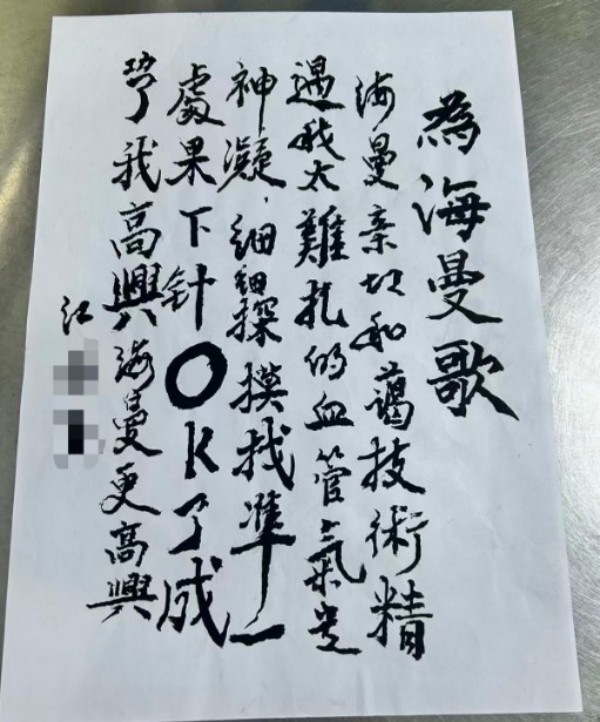 為海曼歌
海曼亲切和藹技術精
遇我太難扎的血管氣定
神凝，細細探摸找準一
處果下针OK了成
功了我高興海曼更高興
江